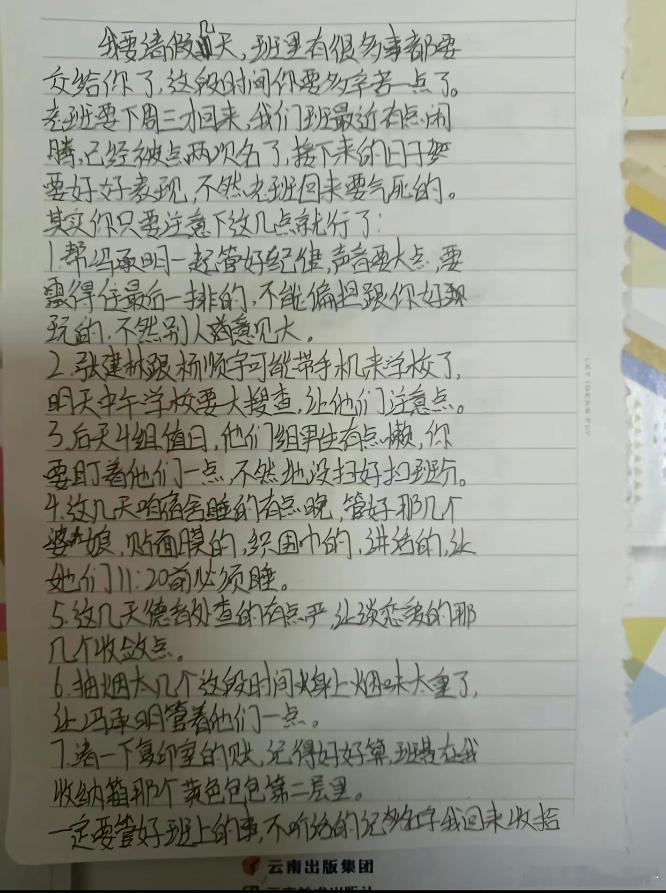 我要请假几天,班里有很多事都要
交给你了,这段时间你要多辛苦一点了。
老班要下周三才回来,我们班最近有点闹
腾,已经被点两次名了,接下来的日子
要好好表现,不然老班回来要气死的。
其实你只要注意下这几点就行了:
1.帮冯承明一起管好纪律,声音要大点,要
震得住最后一排的,不能偏袒跟你好
玩的,不然别人意见大。
2.张建林跟杨顺宇可能带手机来学校了,
明天中午学校要大搜查,让他们注意点。
3.后天4组值日,他们组男生有点懒,你
要盯着他们一点,不然地没扫好扣班分。
4.这几天咱宿舍睡的有点晚,管好那几个
婆娘,贴面膜的,织围巾的,讲话的,让
她们11:20前必须睡。
5.这几天德育处查的有点严,让谈恋爱的那
几个收敛点。
6.抽烟大几个这段时间身上烟味太重了,
让冯承明管着他们一点。
7.清一下复印室的账,记得好好算,班费在我
收纳箱那个黄色包包第二层里。
一定要管好班上的事,不听话的记名字我回来收拾
云南出版集团